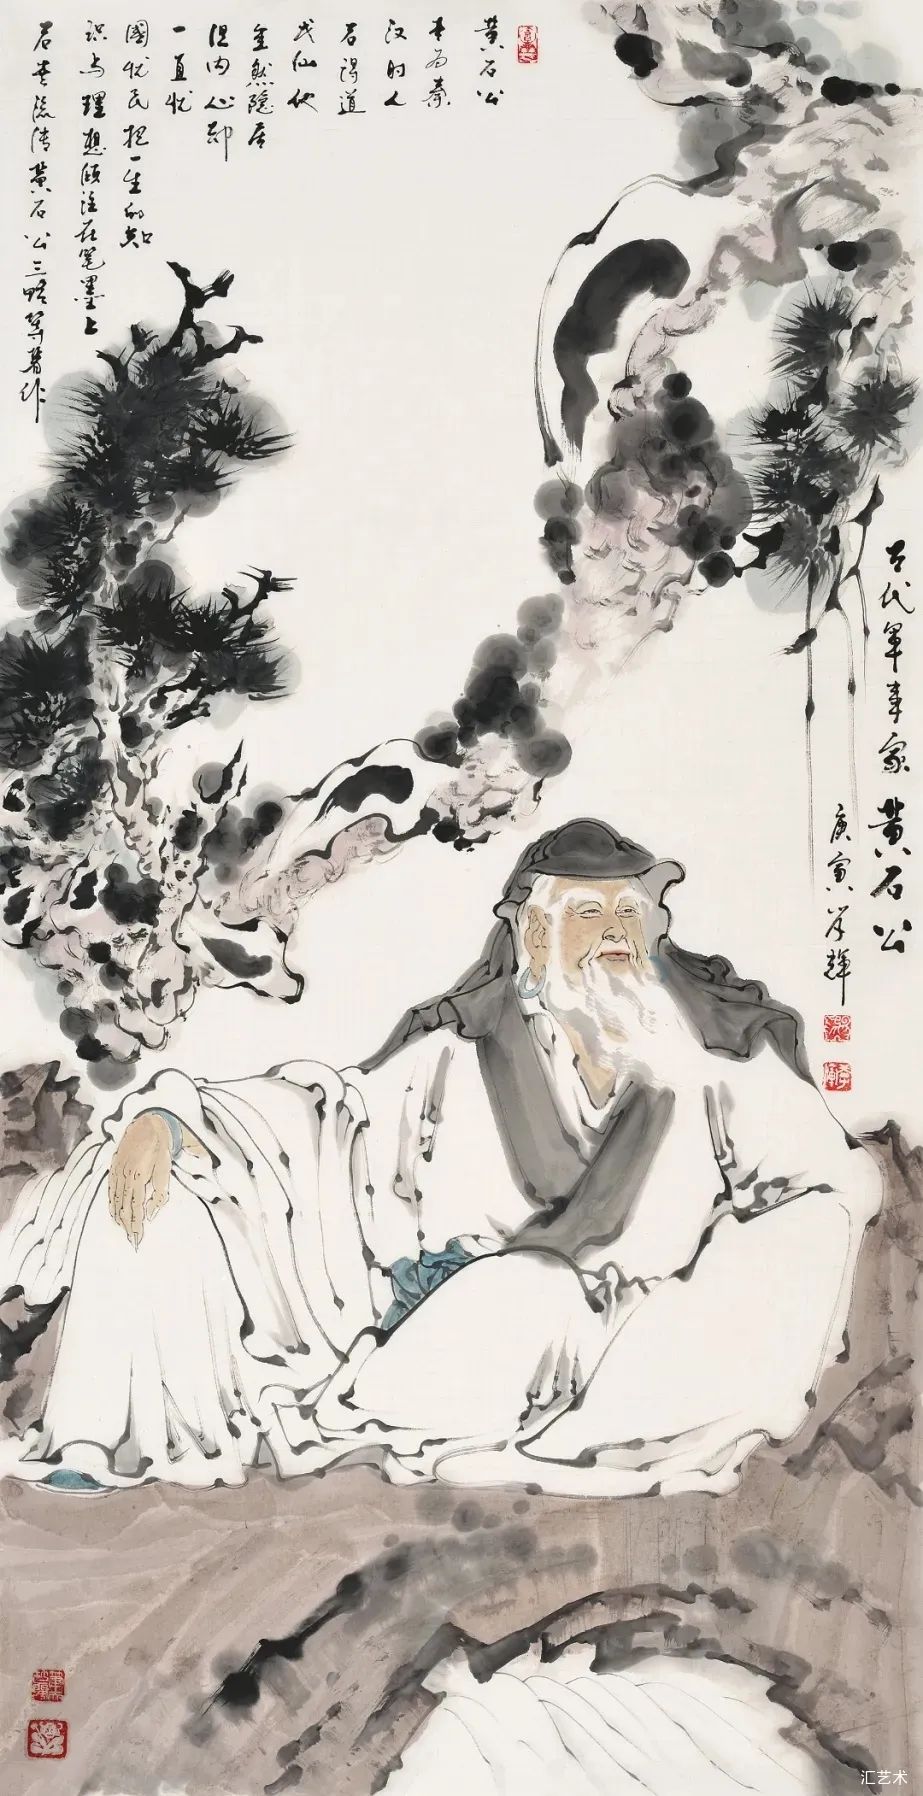 古代军事家 黄石公
庚寅
黄石公
本为秦
汉时人
后得道
成仙他
虽然隐居
但内心却
一直忧
國忧民把一生的知
识与理想倾注在笔墨上
后世流传黄石公三略等著作
汇艺术